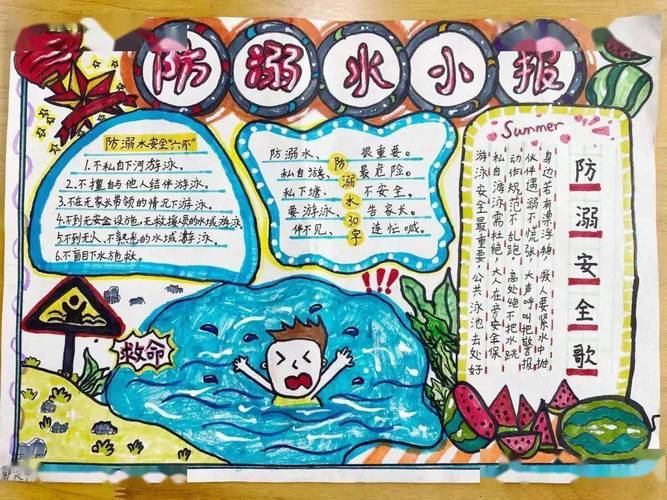 防溺水小报
防溺水安全“六不”
1.不私自下河游泳。
2.不擅自与他人结伴游泳。
3.不在无家长带领的情况下游泳。
4.不到无安全设施,无救援员的水域游泳
5.不到无人、不熟悉的水域游泳。
6.不盲目下水施救。
防溺水、很重要。
私自游、最危险。
私下塘、不安全。
要游泳、告家长。
伴不见、连忙喊。
防溺水30字
Summer
防溺安全歌
身边若有漂浮物,救人要紧水中抛
伙伴遇溺不慌张,大声呼叫把警报
动作规范不乱跑,高处绝不把水跳
私自游泳需杜绝,大人在旁安全保
游泳安全最重要,公共泳池去处好
!!!
救命